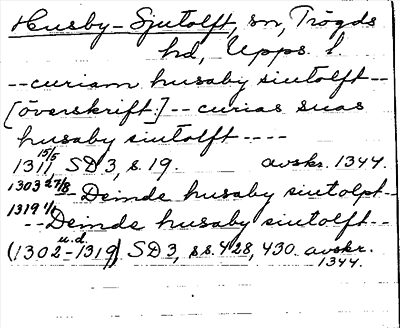 Husby-Sjutolft, sn, Trögds
hd, Upps. l.
--curiam husaby siutolft--
[överskrift:]-- curias suas
husaby siutolft ----
1311 15/5, SD 3, s. 19. avskr. 1344.
1303 27/8 -- Deinde husaby siutolpt--
1319 1/1 --Deinde husaby siutolft--
(1302-1319) u.d. SD 3, s.s. 428, 430. avskr.
1344.